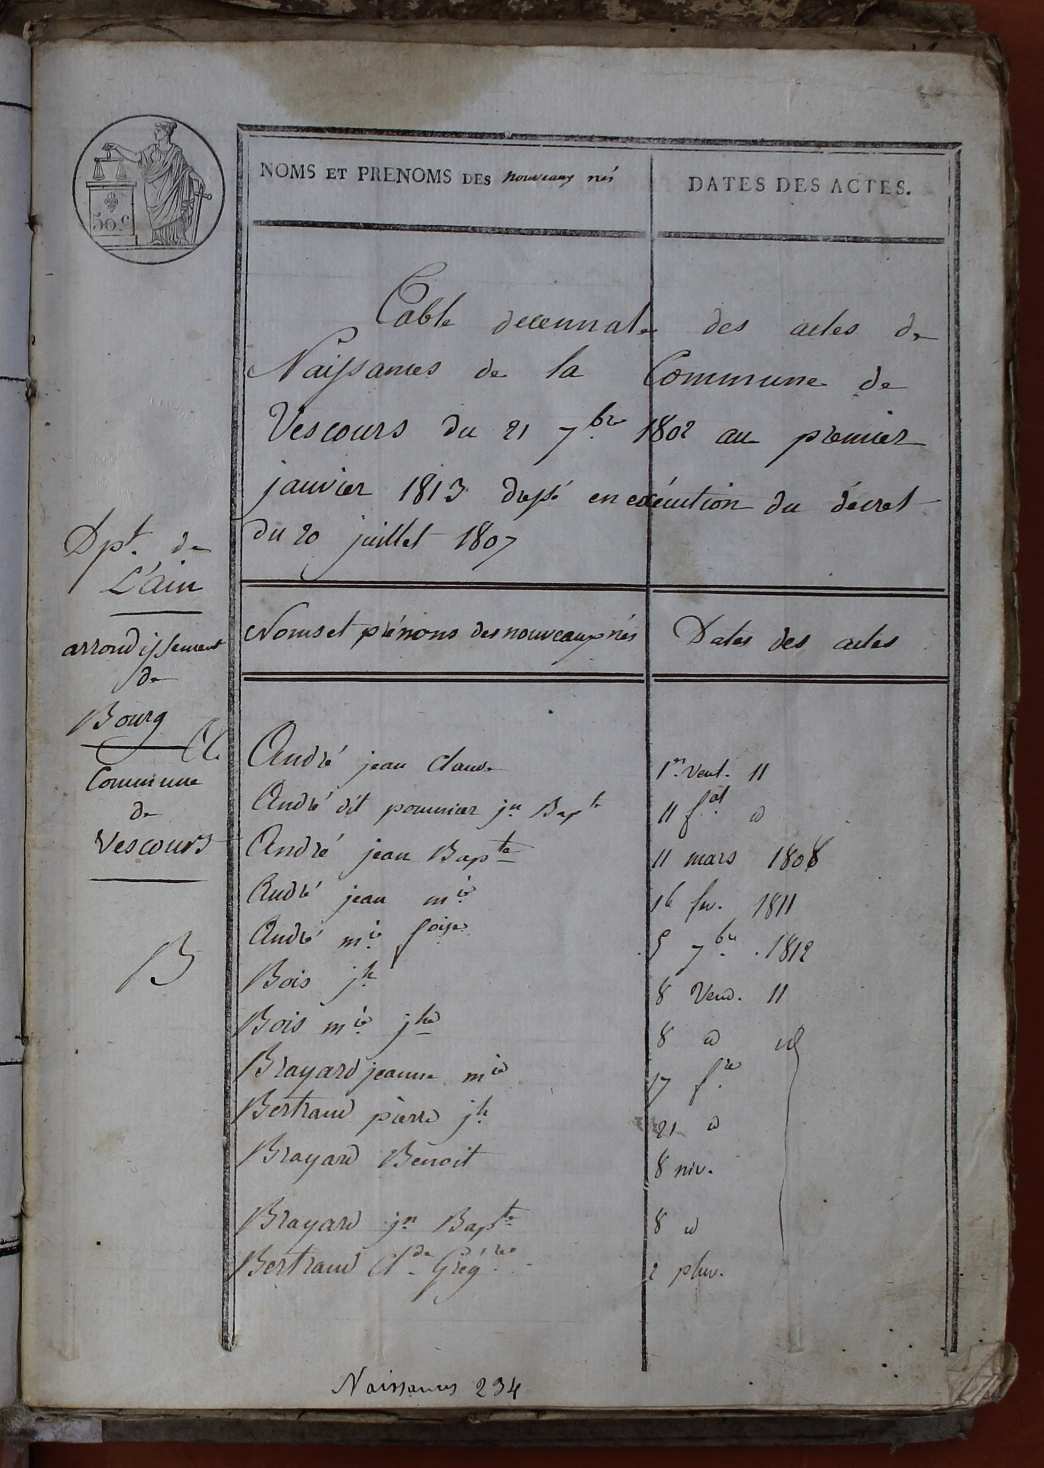 50.c
NOMS ET PRENOMS DES nouveaux nés
DATES DES ACTES.
Table decennale des actes de
Naissances de la Commune de
Vescours du 21 7.bre 1802 au premier
janvier 1813 dressé en exécution du décret
du 20 juillet 1807
Dpt. de
L'ain
arrondissement
de
Bourg
Commune
de
Vescours
Noms et prénoms des nouveaux nés
Dates des actes
A
André jean Claude 1er Vent. 11
André dit pommier jn Bapte 11 f.al d
André jean Bapte 11 mars 1808
André jean mie 16 fev. 1811
André mie foise 5 7bre. 1812
B
Bois jh 8 Vend. 11
Bois mie jhe 8 d id
Brayard jeanne mie 17 f.re
Bertrand pierre jh 21 d
Brayard Benoit 8 niv.
Brayard jn Bapte 8 d
Bertrand Cl.de Grég.re 2 pluv.
Naissances 234